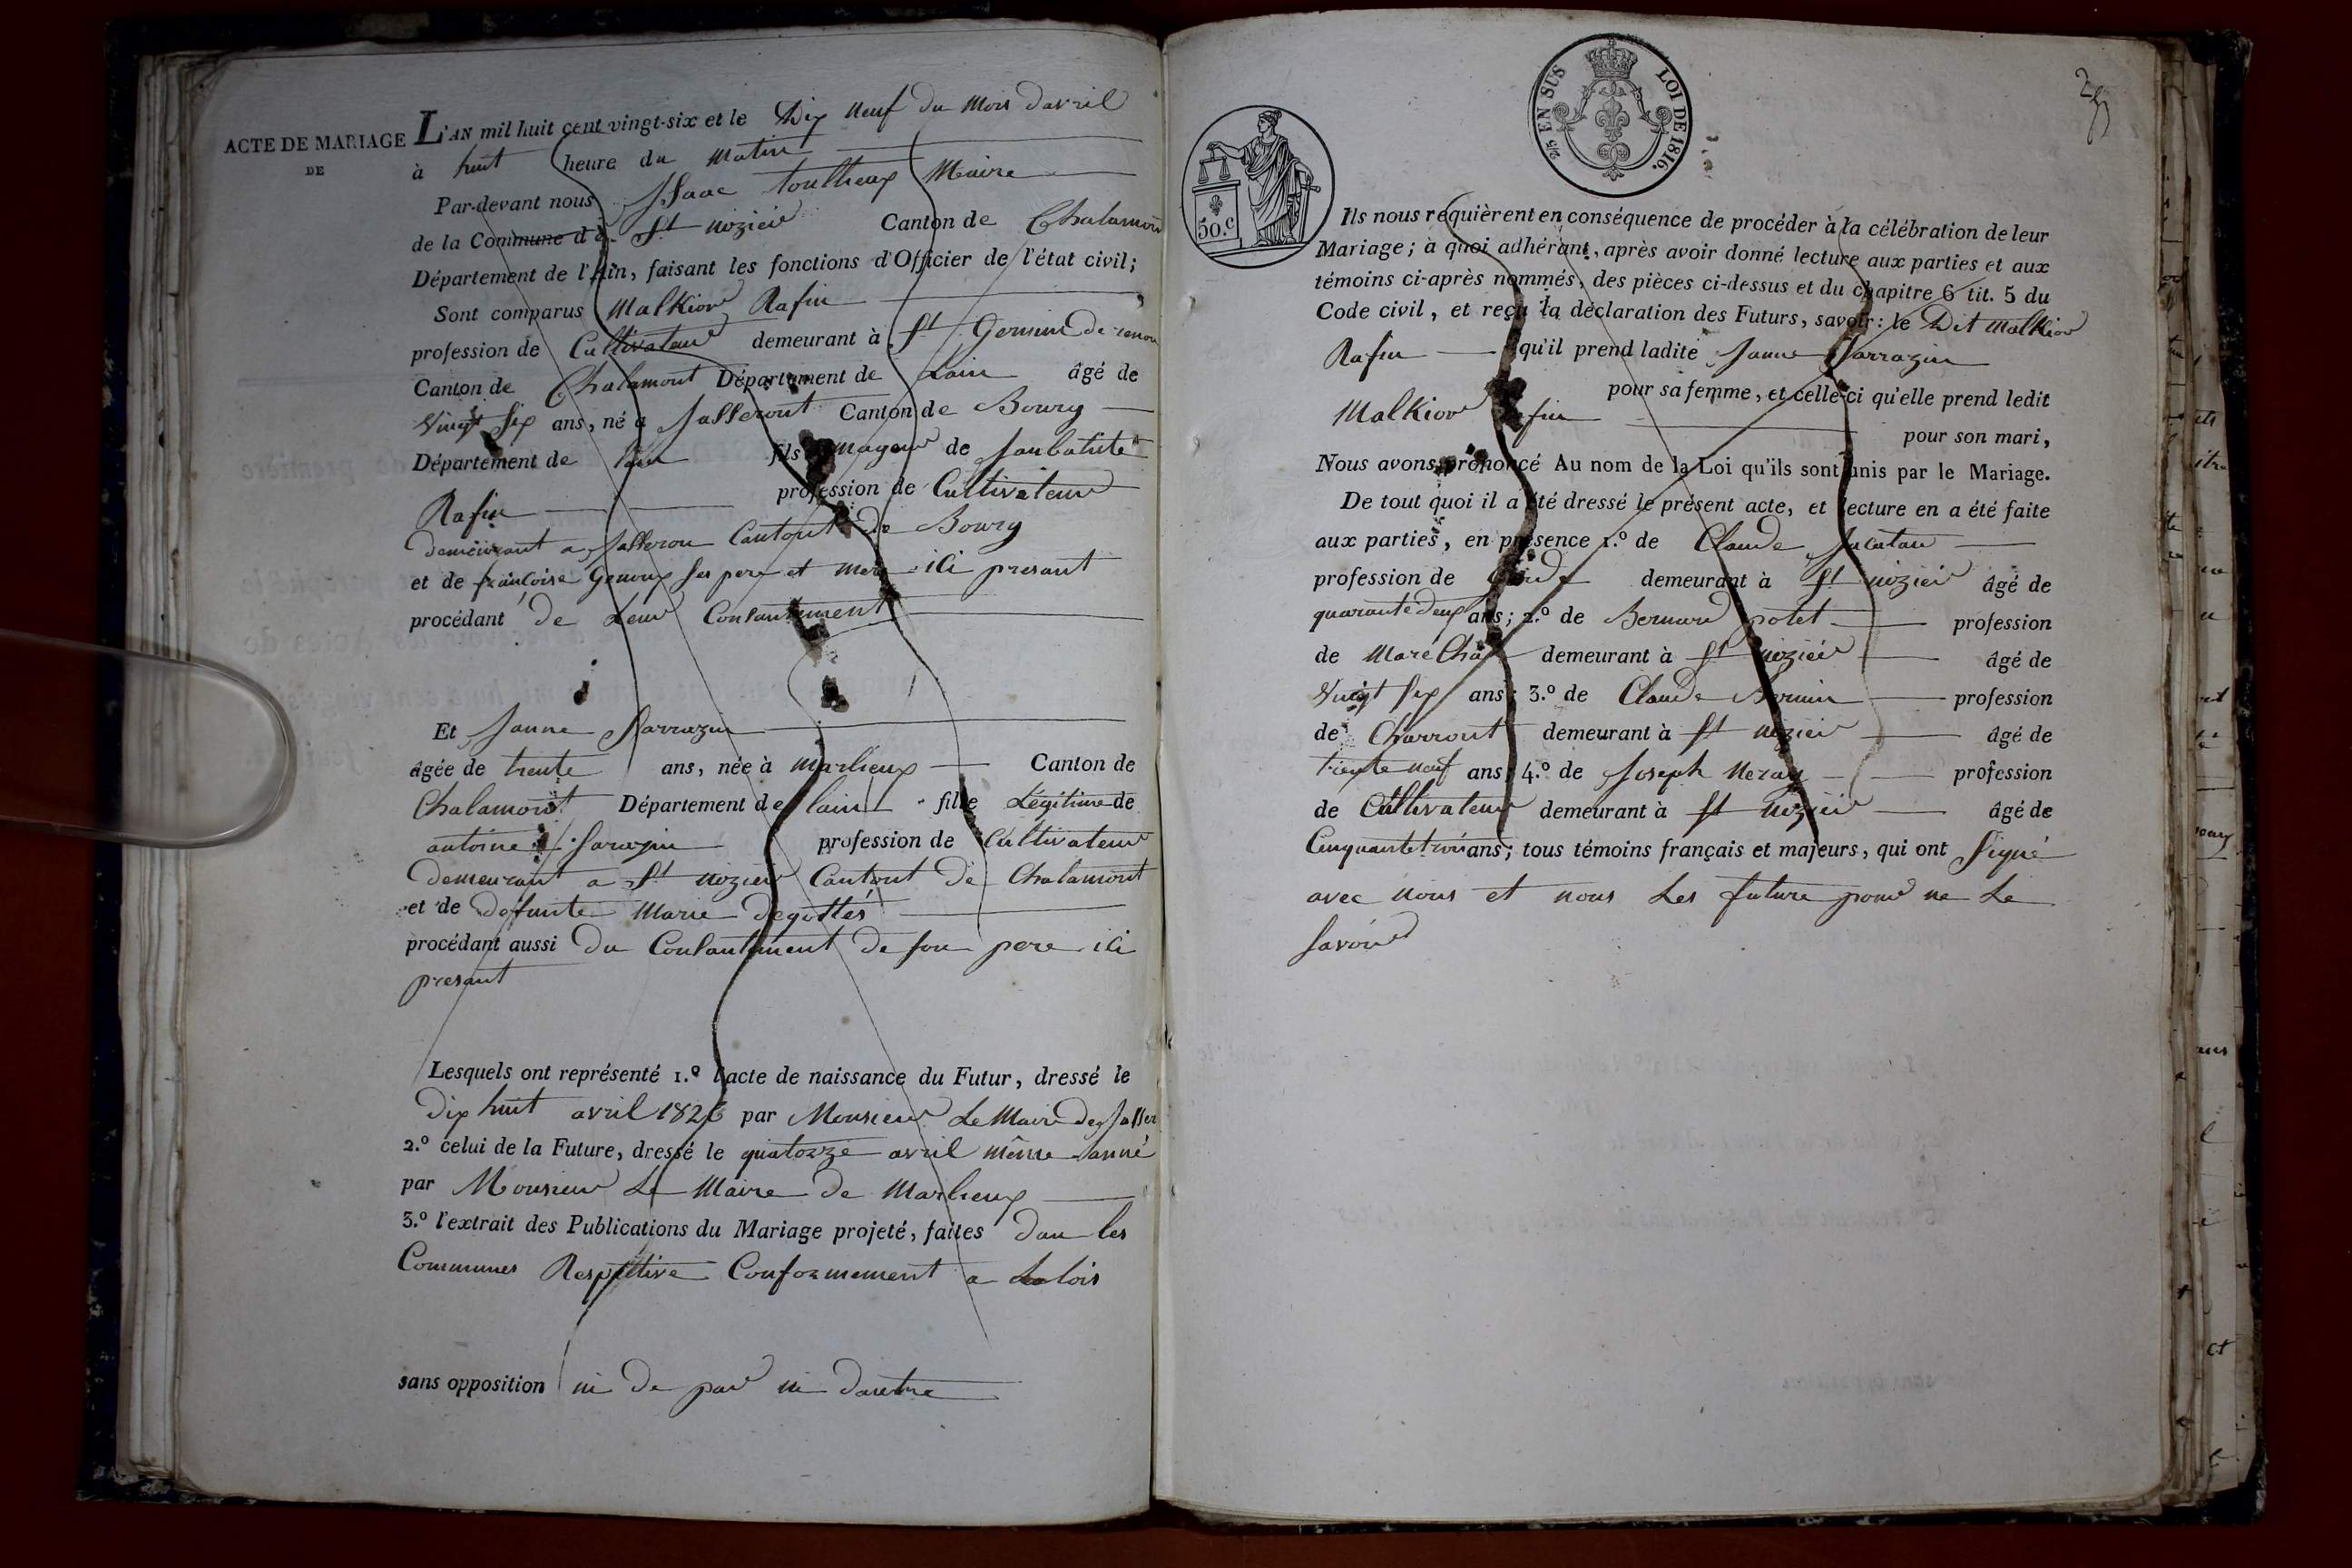 ACTE DE MARIAGE
DE
L'AN mil huit cent vingt-six et le Dix neuf du mois davril
à huit heure du matin
Par-devant nous Isaac toulheux Maire
de la Commune d à St nizier Canton de Chalamont
Département de l'Ain, faisant les fonctions d'Officier de l'état civil;
Sont comparus Malkior Rafin ,
profession de Cultivateur demeurant à St Germin de renon
Canton de Chalamont Département de Lain âgé de
vingt six ans, né a Jasseront Canton de Bourg
Département de lain fils mageur de Janbatiste
Rafin profession de Cultivateur
demeurant a Jasseron Cantont de Bourg
et de françoise Genoux ses pere et mere ici presant
procédant de Leur Consantement
Et Janne Sarrazin
âgée de trente ans, née à Marlieux Canton de
Chalamont Département de lain fille Légitime de
antoine Sarazin profession de Cultivateur
demeurant a St nizier Cantont de Chalamont
et de defunte Marie degottes
procédant aussi du Consantement de son pere ici
presant
Lesquels ont représenté 1.º l'acte de naissance du Futur, dressé le
dix huit avril 1826 par Monsieur Le Maire de Jasser
2.º celui de la Future, dressé le quatorze avril même anné
par Monsieur Le Maire de Marlieux
3.º l'extrait des Publications du Mariage projeté, faites dan les
Communes Respective Conformement a La lois
sans opposition ni de par ni dautre
2/5 EN SUS LOI DE 1816.
50.c
Ils nous requièrent en conséquence de procéder à la célébration de leur
Mariage; à quoi adhérant, après avoir donné lecture aux parties et aux
témoins ci-après nommés, des pièces ci-dessus et du chapitre 6 tit. 5 du
Code civil, et reçu la déclaration des Futurs, savoir: le Dit Malkior
Rafin qu'il prend ladite Janne Sarrazin
pour sa femme, et celle-ci qu'elle prend ledit
Malkior Rafin
pour son mari,
Nous avons prononcé Au nom de la Loi qu'ils sont unis par le Mariage.
De tout quoi il a été dressé le présent acte, et lecture en a été faite
aux parties, en présence 1.º de Claude
profession de Garde demeurant à St nizier âgé de
quarante deux ans; 2.º de Bernard potet profession
de Maréchal demeurant à St nizier âgé de
vingt six ans; 3.º de Claude profession
de Charront demeurant à St nizier âgé de
trente neuf ans; 4.º de Joseph profession
de Cultivateur demeurant à St nizier âgé de
Cinquantetrois ans; tous témoins français et majeurs, qui ont Signé
avec nous et nous Les future pour ne Le
Savoir